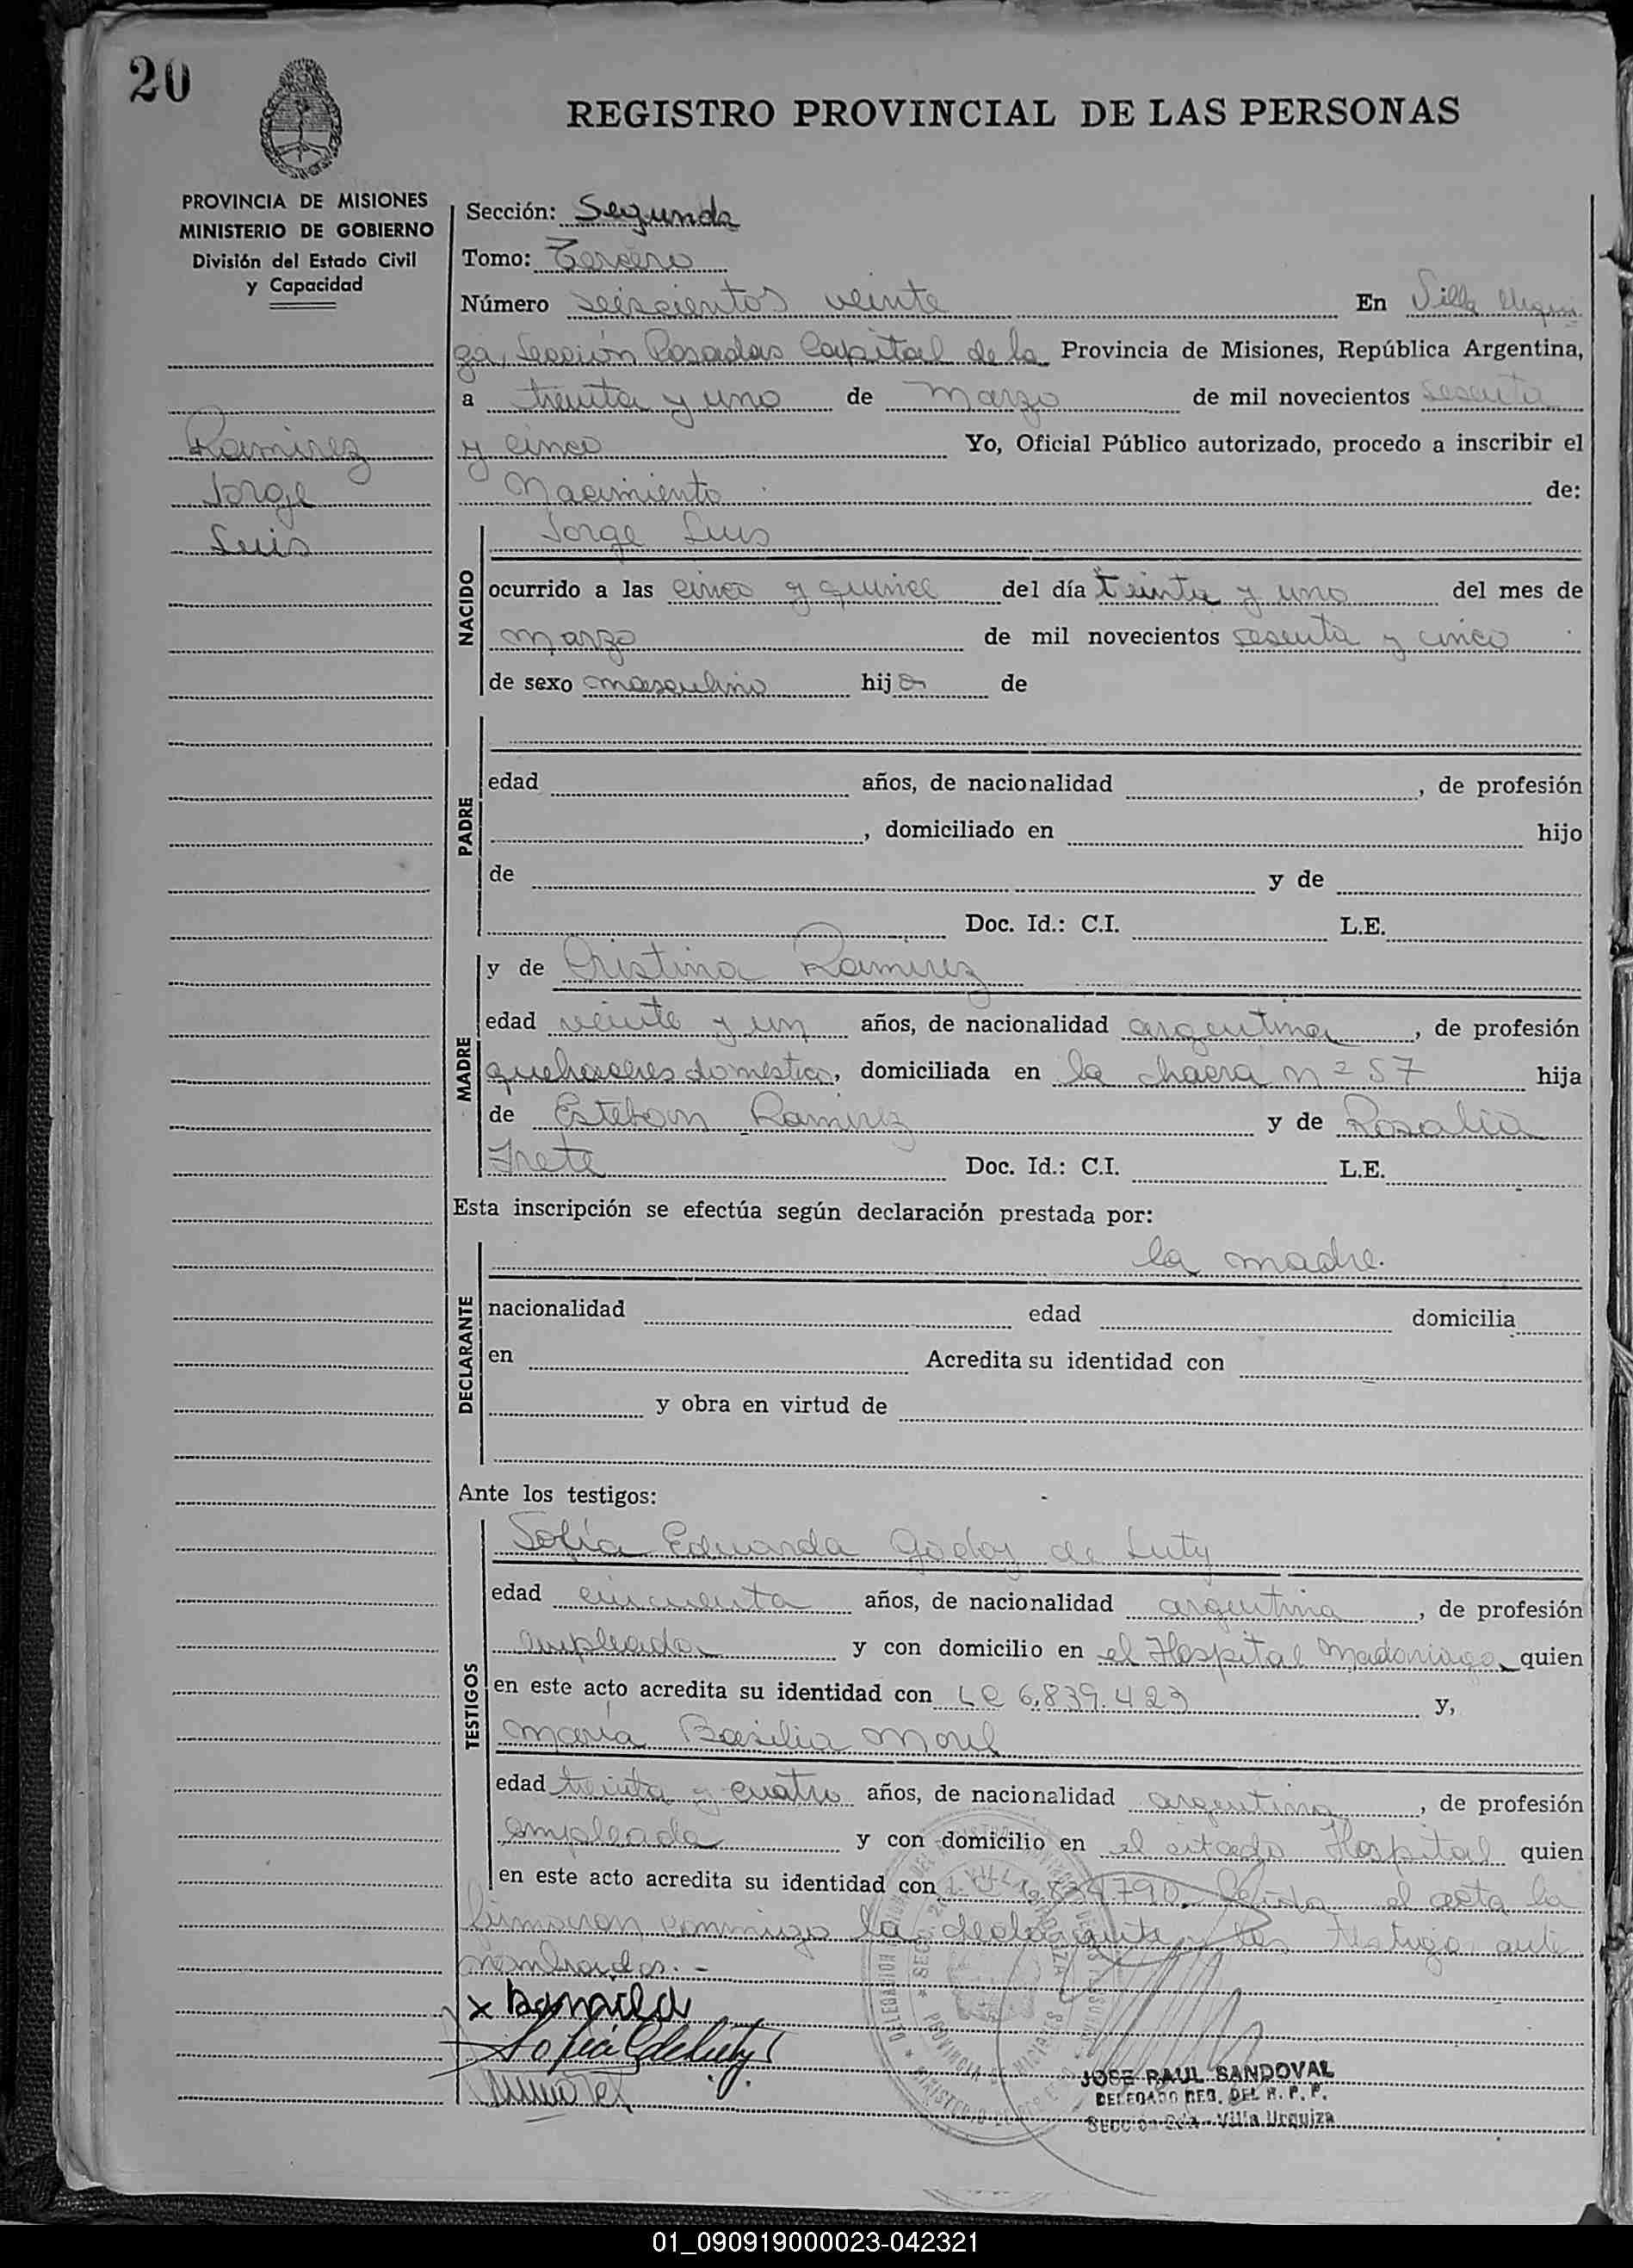 20
REGISTRO PROVINCIAL DE LAS PERSONAS
PROVINCIA DE MISIONES
MINISTERIO DE GOBIERNO
División del Estado Civil
y Capacidad
Ramirez
Jorge
Luis
Sección: Segunda
Tomo: Tercero
Número seiscientos veinte En Villa Urqui
za, Sección Posadas Capital de la Provincia de Misiones, República Argentina,
a treinta y uno de marzo de mil novecientos sesenta
y cinco Yo, Oficial Público autorizado, procedo a inscribir el
Nacimiento de:
NACIDO
Jorge Luis
ocurrido a las cinco y quince del día treinta y uno del mes de
marzo de mil novecientos sesenta y cinco
de sexo masculino hijo de
PADRE
edad años, de nacionalidad , de profesión
, domiciliado en hijo
de y de
Doc. Id.: C.I. L.E.
MADRE
y de Cristina Ramirez
edad veinte y un años, de nacionalidad argentina, de profesión
quehaceres domestico, domiciliada en la chacra n= 57 hija
de Esteban Ramirez y de Rosalia
Frete Doc. Id.: C.I. L.E.
Esta inscripción se efectúa según declaración prestada por:
DECLARANTE
la madre.
nacionalidad edad domicilia
en Acredita su identidad con
y obra en virtud de
Ante los testigos:
TESTIGOS
Sofía Eduarda Godoy de Luty
edad cincuenta años, de nacionalidad argentina, de profesión
empleada y con domicilio en el Hospital Madariaga quien
en este acto acredita su identidad con LC 6.839.423 y,
María Basilia Morel
edad treinta y cuatro años, de nacionalidad argentina, de profesión
empleada y con domicilio en el citado Hospital quien
en este acto acredita su identidad con Leida el acta la
firmaron conmigo la declarante y los testigos ante
nombrados.-
x Ramirez
Sofia G de Luty
JOSE RAUL SANDOVAL
DELEGADO REG. DEL R. P. P.
Sección 2da. Villa Urquiza
01_090919000023-042321